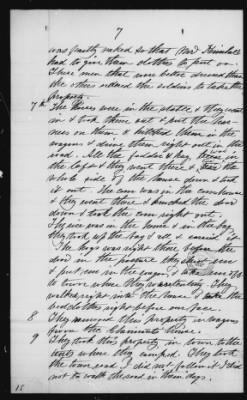 7
was partly naked so that Mrs Kimball
had to give them clothes to put on.
These men that were better dressed than
the others ordered the soldiers to take the
property.
7th The Mules were in the stable & they went
in & took them out & put the har-
ness on them & hitched them in the
wagons & drove them right out in the
road. All the fodder & hay was in
the loft & they went there & tore the
whole side of the house down & took
it out. The corn was in the cornhouse
& they went there & knocked the door
down & took the corn right out.
The rice was in the house & in the bags
they took up the bag & all & carried it
The hogs was right there before the
door in the pasture they shot some
& put some in the wagon & take them off
to town where they was staying. They
walked right into the house & take the
bedclothes right before our face.
8 They removed this property in wagons
from the Claimants house.
9 They took this property in town to the
tents where they camped. They took
the town road. I did not follow it I did
not to walk the road in them days.
15